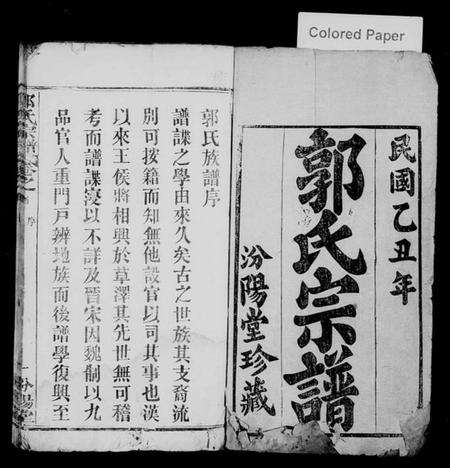 Colored Paper
民國乙丑年
郭氏宗譜
汾陽堂珍藏
郭氏族譜序
譜諜之學由來久矣古之世族其支裔流
別可按籍而知無他設官以司其事也漢
以來王侯將相興於草澤其先世無可稽
考而譜諜寖以不詳及晉宋因魏制以九
品官人重門戸辨地族而後譜學復興至
郭氏宗譜
序
一
汾陽堂